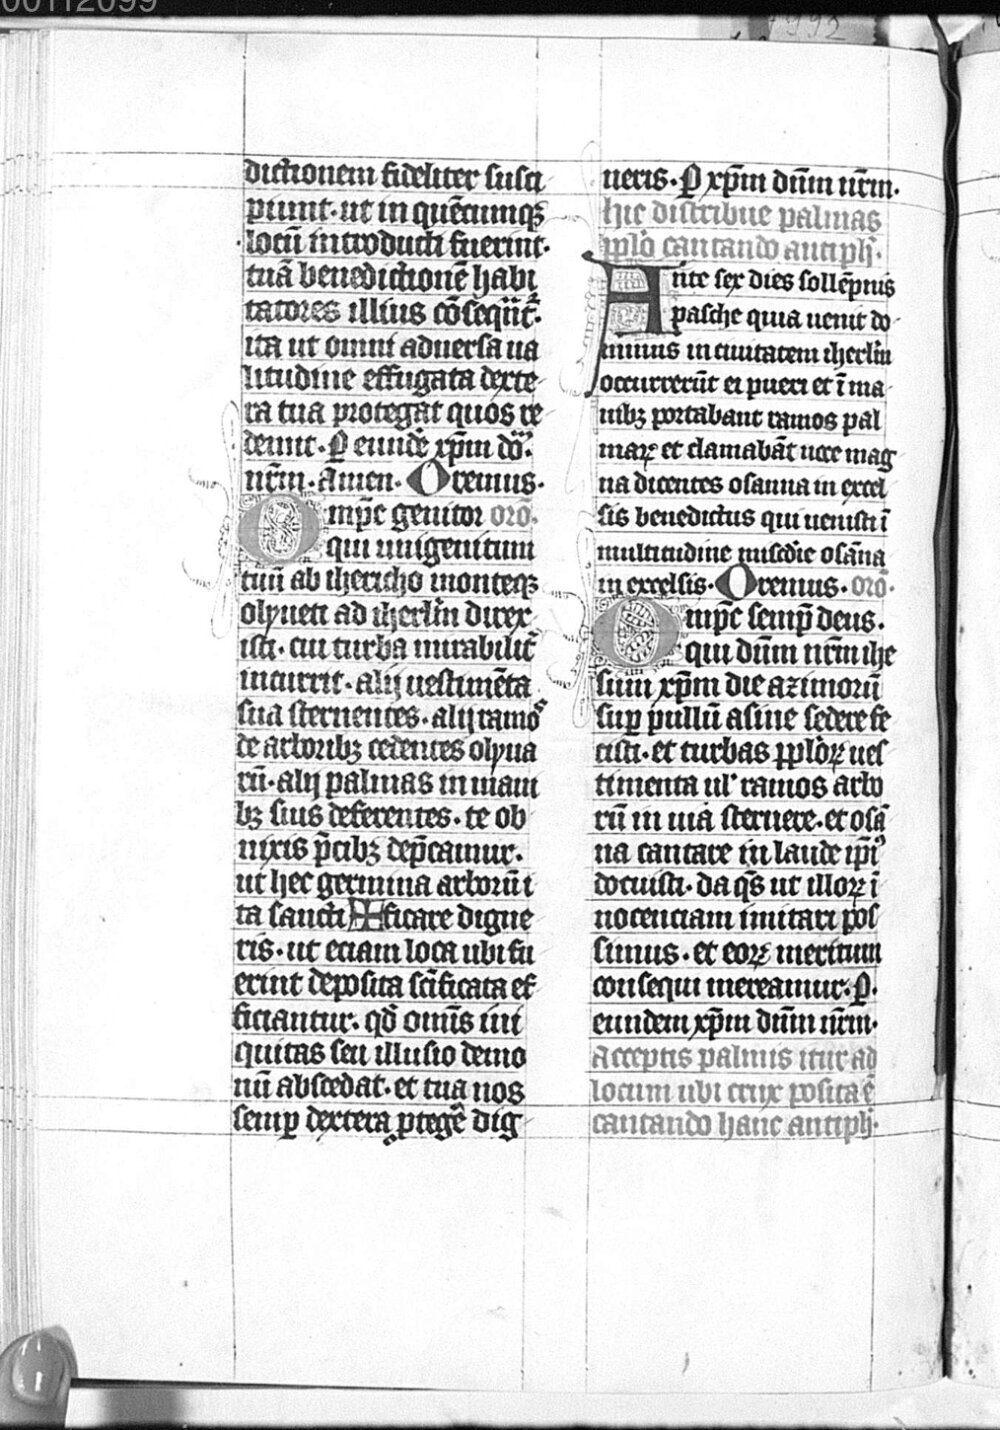 00112099
7992
dictionem fideliter susci
piunt· ut in quēcumqꝫ
locū introducti fuerint·
tuā benedictionē habi
tatores illius cōsequūt᷑·
ita ut omni aduersa ua
litudine effugata dexte
ra tua protegat quos re
demit· ꝑ eundē xp̄m dō·
nr̄m· Amen· Oremus·
Omp̄c genitor orō·
qui unigenitum
tuū ab ihericho monteqꝫ
olyueti ad iherl̄m direx
isti· cui turba mirabilit̄
incurrit· alij uestimēta
sua sternentes· alij ramoˢ
de arboribꝫ cedentes olyua
rū· alij palmas in mani
bꝫ suis deferentes· te ob
nixis p̄cibꝫ dep̄camur·
ut hec germina arborū i
ta sancti ✠ ficare digne
ris· ut eciam loca ubi fu
erint deposita sc̄ificata ef
ficiantur· qd̄ omīs ini
quitas seu illusio demo
nū abscedat· et tua nos
semꝑ dextera ꝓtegē dig
neris· ꝑ xp̄m dn̄m nr̄m·
hic distribue palmas
pplō cantando antiph̄·
Ante sex dies sollēpnis
pasche quia uenit do
minus in ciuitatem iherl̄m
occurrerūt ei pueri et ī ma
nibꝫ portabant ramos pal
maꝝ et clamabāt uoce mag
na dicentes osanna in excel
sis benedictus qui uenisti ī
multitudine misc̄die osāna
in excelsis· Oremus· orō·
Omp̄c semꝑ deus·
qui dn̄m nr̄m ihe
sum xp̄m die azimorū
suꝑ pullū asine sedere fe
cisti· et turbas pplōꝝ ues
timenta ul' ramos arbo
rū in uia sternere· et osā
na cantare in laude ip̄iꝰ
docuisti· da qs̄ ut illoꝝ ī
nocenciam imitari pos
simus· et eoꝝ meritum
consequi mereamur· ꝑ·
eundem xp̄m dn̄m nr̄m·
Acceptis palmis itur ad
locum ubi crux posita ē
cantando hanc antiph̄·